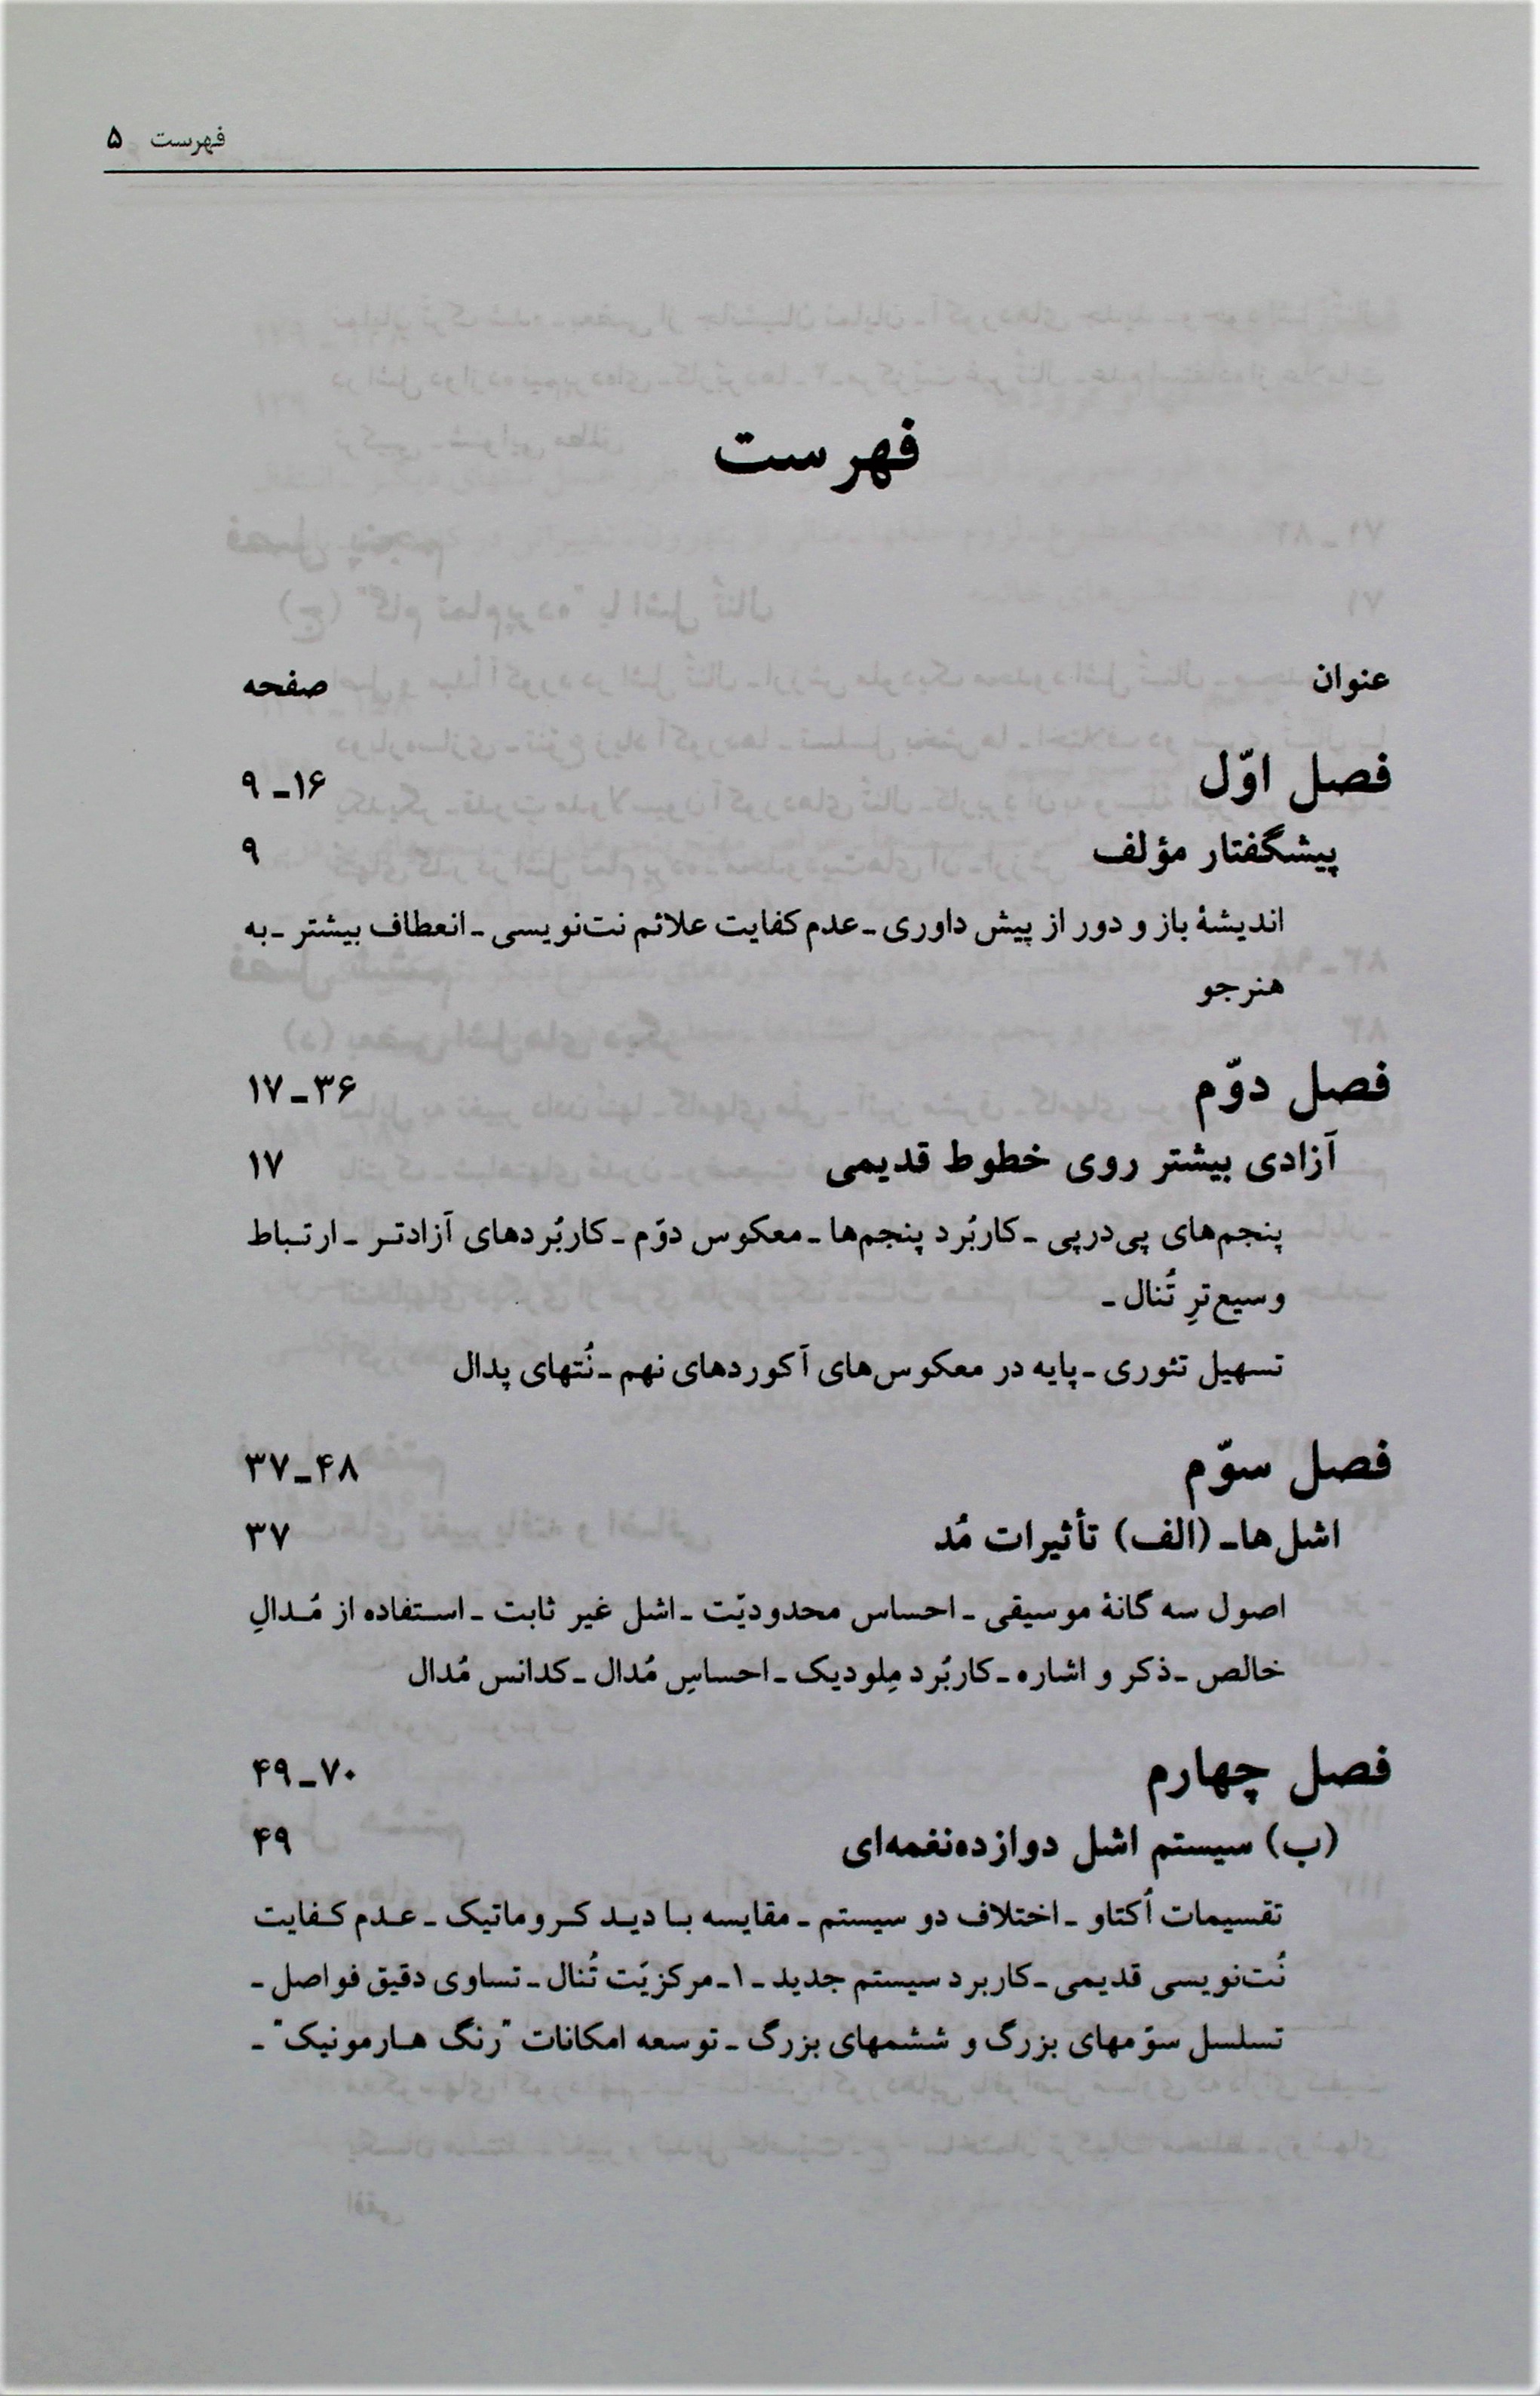 فهرست ۵
فهرست
عنوان صفحه
فصل اوّل ۹ـ۱۶
پیشگفتار مؤلف ۹
اندیشهٔ باز و دور از پیش داوری ـ عدم کفایت علائم نت‌نویسی ـ انعطاف بیشتر ـ به
هنرجو
فصل دوّم ۱۷ـ۳۶
آزادی بیشتر روی خطوط قدیمی ۱۷
پنجم‌های پی‌درپی ـ کاربُرد پنجم‌ها ـ معکوس دوّم ـ کاربُردهای آزادتر ـ ارتباط
وسیع‌ترِ تُنال ـ
تسهیل تئوری ـ پایه در معکوس‌های آکوردهای نهم ـ نُتهای پدال
فصل سوّم ۳۷ـ۴۸
اشل‌ها ـ (الف) تأثیرات مُد ۳۷
اصول سه گانهٔ موسیقی ـ احساس محدودیّت ـ اشل غیر ثابت ـ استفاده از مُدالِ
خالص ـ ذکر و اشاره ـ کاربُرد مِلودیک ـ احساسِ مُدال ـ کدانس مُدال
فصل چهارم ۴۹ـ۷۰
(ب) سیستم اشل دوازده‌نغمه‌ای ۴۹
تقسیمات اُکتاو ـ اختلاف دو سیستم ـ مقایسه با دید کروماتیک ـ عدم کفایت
نُت‌نویسی قدیمی ـ کاربرد سیستم جدید ـ ۱ـ مرکزیّت تُنال ـ تساوی دقیق فواصل ـ
تسلسل سوّمهای بزرگ و ششمهای بزرگ ـ توسعه امکانات "رنگ هارمونیک" ـ